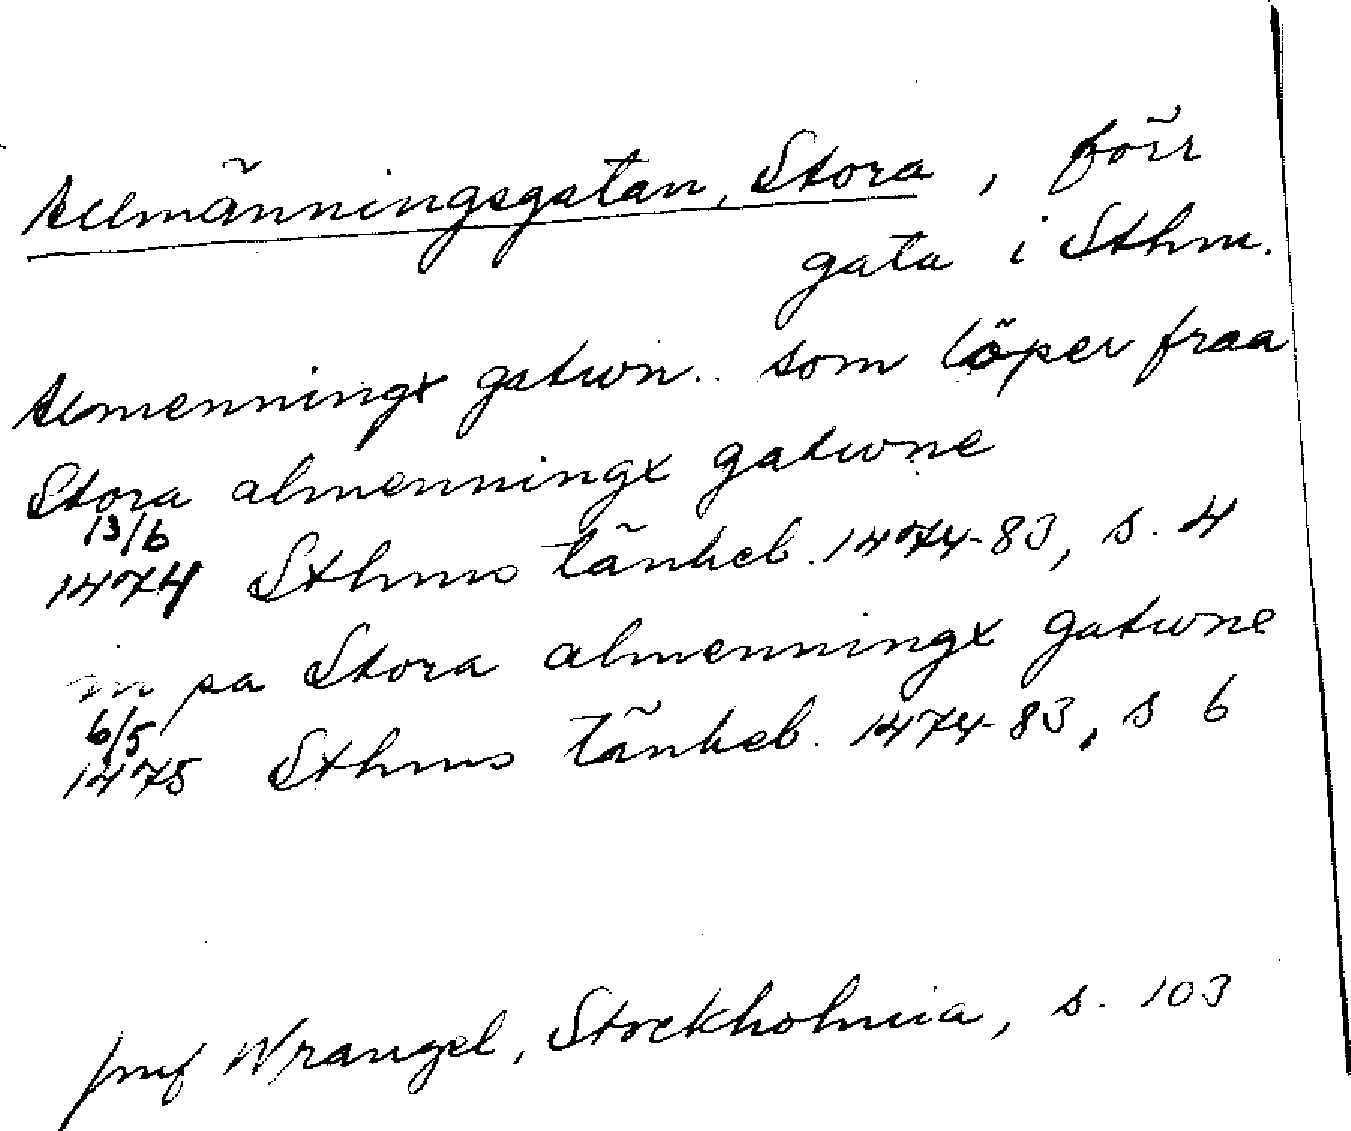 Allmänningsgatan, Stora, förr
gata i Sthm.
Almenningx gatwn.. som löper fraa
Stora almenningx gatwne
13/6
1474 Sthms tänkeb. 1474-83, s. 4
in pa Stora almenningx gatwne
6/5
1475 Sthms tänkeb. 1474-83, s 6
jmf Wrangel, Stockholmia, s. 103